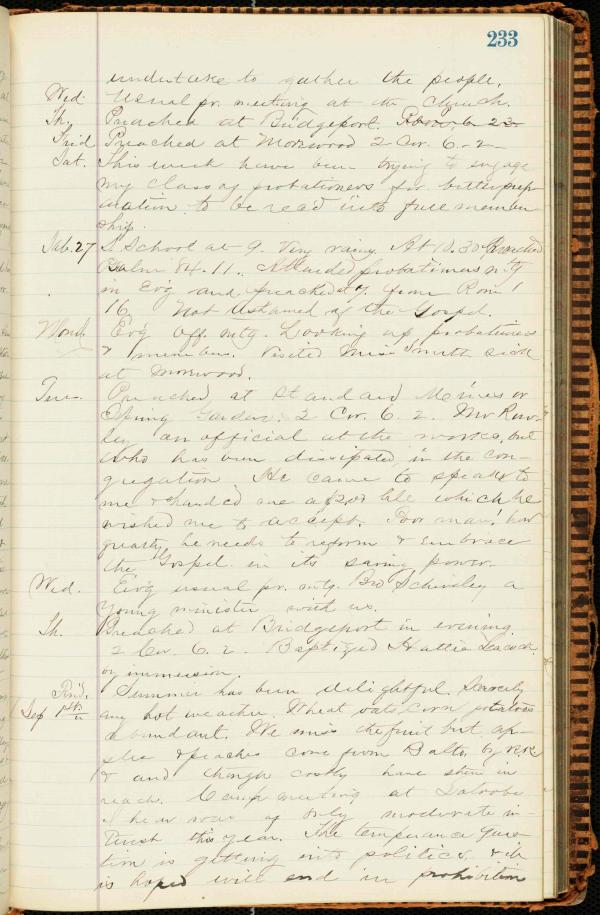 233
undertake to gather the people.
Wed. Usual pr. meeting at the church.
Th. Preached at Bridgeport. Rom. 6-23-
Frid. Preached at Morewood 2 Cor. 6-2-
Sat. This week have been trying to engage
my class of probationers for better prep-
aration to be read into full member-
ship.
27 S School at 9. Very rainy. At 10.30 Preached
Psalm 84.11. Attended probationers m't'g
in Ev'g and preached from Rom 1
16. Not ashamed of the Gospel.
Mond. Ev'g Off. mtg. Looking up probationers
& members. Visited Miss Smith sick
at Morewood.
Tues. Preached at Standard Mines or
Spring Garden. 2 Cor. 6. 2. Mr Row-
ley an official at the works, but
who has been dissipated, in the con-
gregation. He came to speak to
me & handed me a bill which he
wished me to accept. Poor man! how
greatly he needs to reform & embrace
the Gospel in its saving power.
Wed. Ev'g usual pr. mtg. Bro Schively a
young minister with us.
Th. Preached at Bridgeport in evening
2 Cor. 6. 2. Baptized Hattie
by immersion.
Frid. Summer has been delightful. Scarcely
Sep 1st any hot weather. Wheat oats corn potatoes
abundant. We miss the fruit but ap-
ples & peaches come from Balto. by R.R.
& and though costly have them in
reach. Camp meeting at Latrobe
hear was of only moderate in-
terest this year. The temperance ques-
tion is getting into politics & it
is hoped will end in prohibition